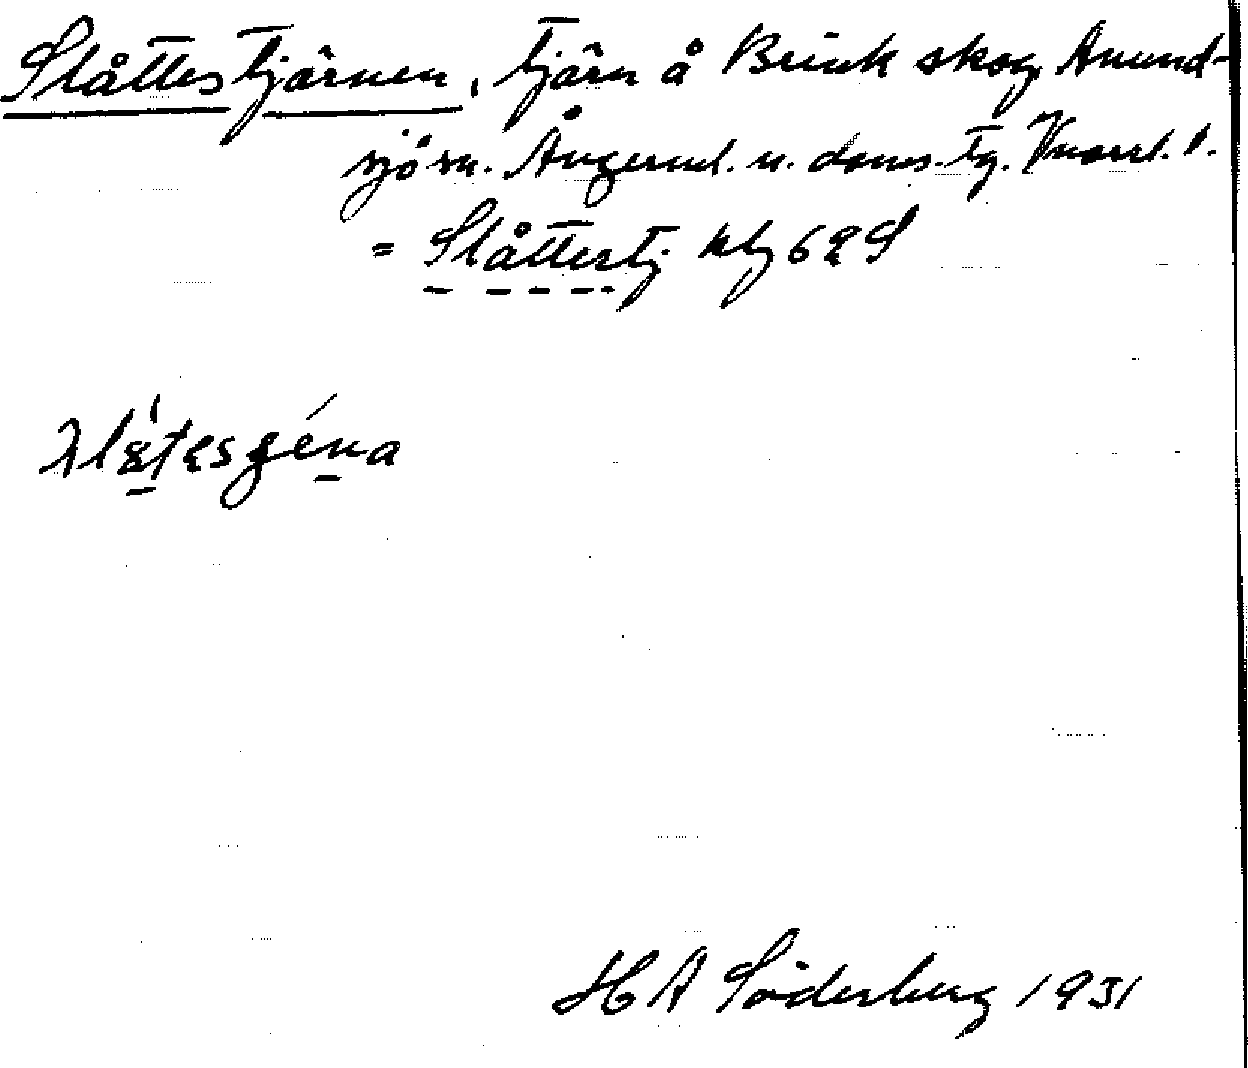 Slåttestjärnen, tjärn å Brink skog Anund-
sjö sn. Ångerml. n. doms. tg. Vnorrl. l.
= Slåttertj kbg 62 S
Slåtesgéna
H A Söderberg 1931